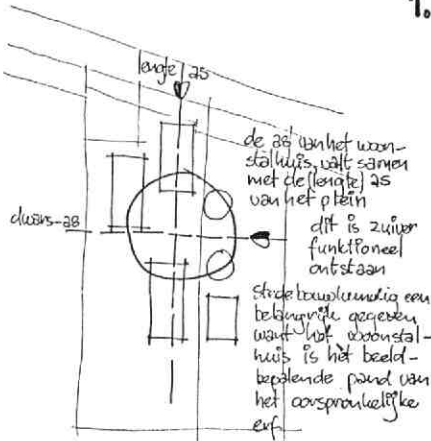 1.
lengte as
dwars-as
de as van het woon-
stalhuis valt samen
met de (lengte) as
van het plein
dit is zuiver
funktioneel
ontstaan
stedebouwkundig een
belangrijk gegeven
want het woonstal-
huis is hét beeld-
bepalende pand van
het oorspronkelijke
erf